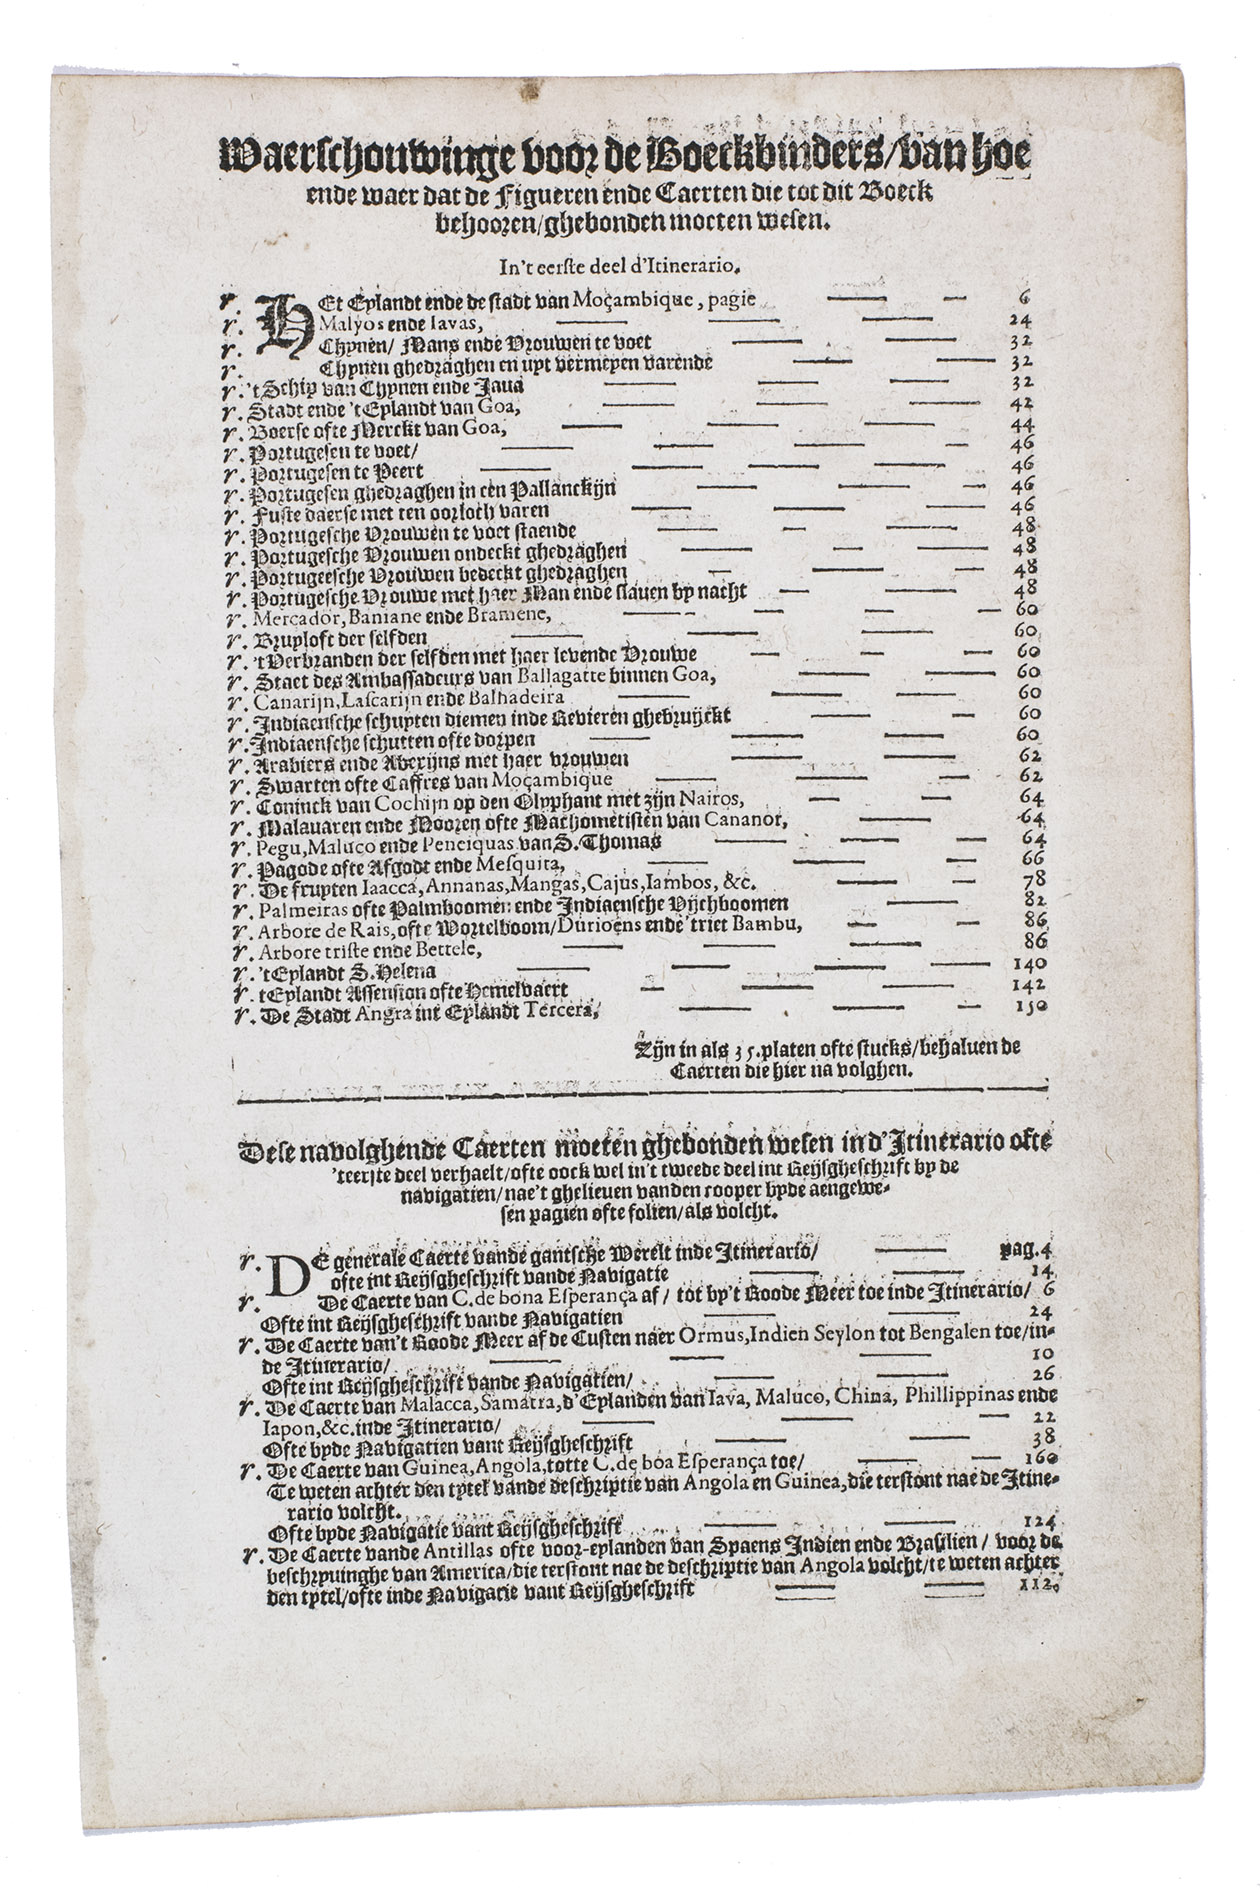 Waerschouwinge voor de Boeckbinders/van hoe
ende waer dat de Figueren ende Caerten die tot dit Boeck
behooren/ghebonden moeten wesen.
In't eerste deel d'Itinerario.
r. HEt Eylandt ende de stadt van Moçambique, pagie 6
r. Malyos ende Iavas, 24
r. Chynen/ Mans ende Vrouwen te voet 32
r. Chynen ghedraghen en uyt vermeyen varende 32
r. 't Schip van Chynen ende Java 32
r. Stadt ende 't Eylandt van Goa, 42
r. Boerse ofte Merckt van Goa, 44
r. Portugesen te voet/ 46
r. Portugesen te Peert 46
r. Portugesen ghedraghen in een Pallanckijn 46
r. Fuste daerse met ten oorloth varen 46
r. Portugesche Vrouwen te voet staende 48
r. Portugesche Vrouwen ondeckt ghedraghen 48
r. Portugeesche Vrouwen bedeckt ghedraghen 48
r. Portugesche Vrouwe met haer Man ende slauen by nacht 48
r. Mercador, Baniane ende Bramene, 60
r. Bruyloft der selfden 60
r. 't Verbranden der selfden met haer levende Vrouwe 60
r. Staet des Ambassadeurs van Ballagatte binnen Goa, 60
r. Canarijn, Lascarijn ende Balhadeira 60
r. Indiaensche schuyten diemen inde Revieren ghebruyckt 60
r. Indiaensche schutten ofte dorpen 60
r. Arabiers ende Abexijns met haer vrouwen 62
r. Swarten ofte Caffres van Moçambique 62
r. Coninck van Cochijn op den Olyphant met zijn Nairos, 64
r. Malavaren ende Mooren ofte Machometisten van Cananor, 64
r. Pegu, Maluco ende Penciquas van S. Thomas 64
r. Pagode ofte Afgodt ende Mesquita, 66
r. De fruyten Iaacca, Annanas, Mangas, Cajus, Iambos, &c. 78
r. Palmeiras ofte Palmboomen ende Indiaensche Vijchboomen 82
r. Arbore de Rais, ofte Wortelboom/Durioens ende 'triet Bambu, 86
r. Arbore triste ende Bettele, 86
r. 't Eylandt S. Helena 140
r. t Eylandt Assension ofte Hemelvaert 142
r. De Stadt Angra int Eylandt Tercera, 150
Zijn in als 35. platen ofte stucks/behaluen de
Caerten die hier na volghen.
Dese navolghende Caerten moeten ghebonden wesen in d'Itinerario ofte
'teerste deel verhaelt/ofte oock wel in't tweede deel int Reijsgheschrift by de
navigatien/nae't ghelieven vanden cooper byde aengewe-
sen pagien ofte folien/als volcht.
r. DE generale Caerte vande gantsche Werelt inde Itinerario/ pag. 4
ofte int Reijsgheschrift vande Navigatie 14
r. De Caerte van C. de bona Esperança af / tot by't Roode Meer toe inde Itinerario/ 6
Ofte int Reijsgheschrift vande Navigatien 24
r. De Caerte van't Roode Meer af de Custen naer Ormus, Indien Seylon tot Bengalen toe/in-
de Itinerario/ 10
Ofte int Reijsgheschrift vande Navigatien/ 26
r. De Caerte van Malacca, Samatra, d'Eylanden van Iava, Maluco, China, Phillippinas ende
Iapon, &c. inde Itinerario/ 22
Ofte byde Navigatien vant Reijsgheschrift 38
r. De Caerte van Guinea, Angola, totte C. de boa Esperança toe/ 160
Te weten achter den tytel vande descriptie van Angola en Guinea, die terstont nae de Itine-
rario volcht.
Ofte byde Navigatie vant Reijsgheschrift 124
r. De Caerte vande Antillas ofte voor-eylanden van Spaens Indien ende Brasilien / voor de
beschryvinghe van America/die terstont nae de descriptie van Angola volcht/te weten achter
den tytel/ofte inde Navigatie vant Reijsgheschrift 112.